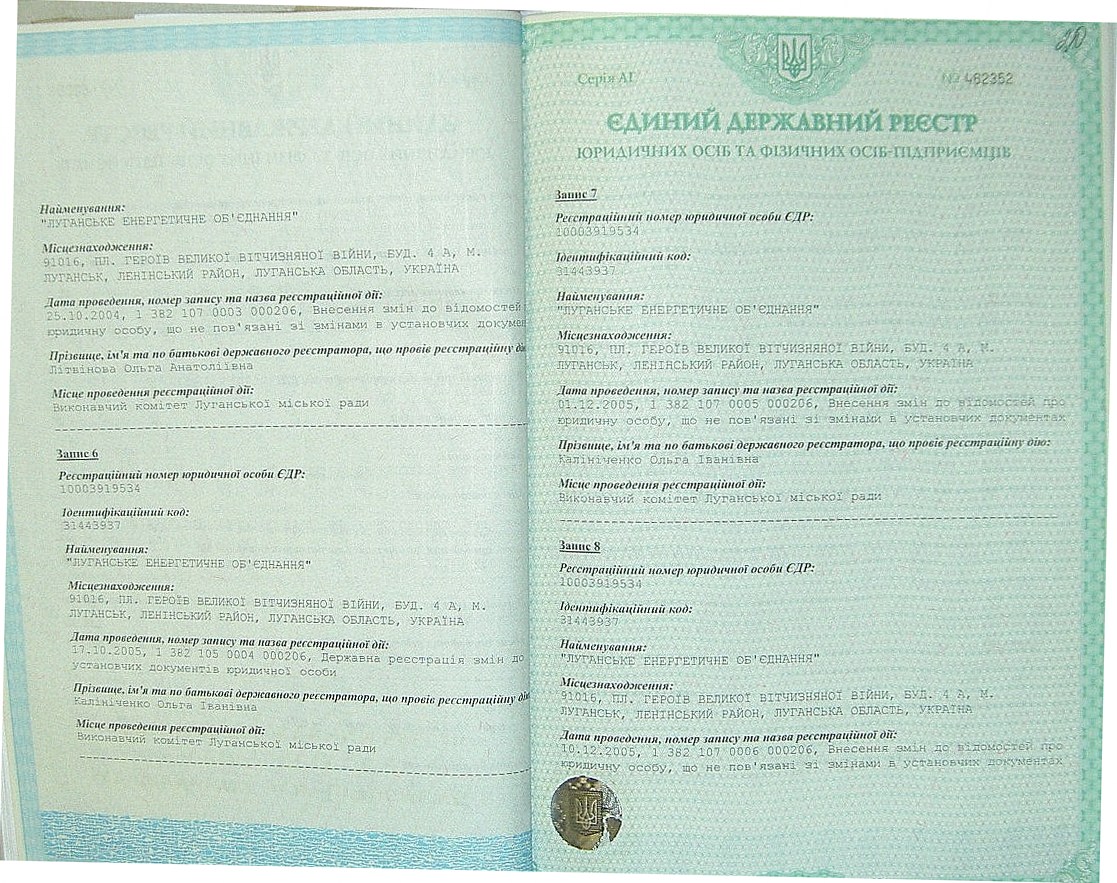 Найменування:
"ЛУГАНСЬКЕ ЕНЕРГЕТИЧНЕ ОБ'ЄДНАННЯ"
Місцезнаходження:
91016, ПЛ. ГЕРОЇВ ВЕЛИКОЇ ВІТЧИЗНЯНОЇ ВІЙНИ, БУД. 4 А, М.
ЛУГАНСЬК, ЛЕНІНСЬКИЙ РАЙОН, ЛУГАНСЬКА ОБЛАСТЬ, УКРАЇНА
Дата проведення, номер запису та назва реєстраційної дії:
25.10.2004, 1 382 107 0003 000206, Внесення змін до відомостей
юридичну особу, що не пов'язані зі змінами в установчих докумен
Прізвище, ім'я та по батькові державного реєстратора, що провів реєстраційну дію
Літвінова Ольга Анатоліївна
Місце проведення реєстраційної дії:
Виконавчий комітет Луганської міської ради
Запис 6
Реєстраційний номер юридичної особи ЄДР:
10003919534
Ідентифікаційний код:
31443937
Найменування:
"ЛУГАНСЬКЕ ЕНЕРГЕТИЧНЕ ОБ'ЄДНАННЯ"
Місцезнаходження:
91016, ПЛ. ГЕРОЇВ ВЕЛИКОЇ ВІТЧИЗНЯНОЇ ВІЙНИ, БУД. 4 А, М.
ЛУГАНСЬК, ЛЕНІНСЬКИЙ РАЙОН, ЛУГАНСЬКА ОБЛАСТЬ, УКРАЇНА
Дата проведення, номер запису та назва реєстраційної дії:
17.10.2005, 1 382 105 0004 000206, Державна реєстрація змін до
установчих документів юридичної особи
Прізвище, ім'я та по батькові державного реєстратора, що провів реєстраційну дію
Калініченко Ольга Іванівна
Місце проведення реєстраційної дії:
Виконавчий комітет Луганської міської ради
210
Серія АГ № 462352
ЄДИНИЙ ДЕРЖАВНИЙ РЕЄСТР
ЮРИДИЧНИХ ОСІБ ТА ФІЗИЧНИХ ОСІБ-ПІДПРИЄМЦІВ
Запис 7
Реєстраційний номер юридичної особи ЄДР:
10003919534
Ідентифікаційний код:
31443937
Найменування:
"ЛУГАНСЬКЕ ЕНЕРГЕТИЧНЕ ОБ'ЄДНАННЯ"
Місцезнаходження:
91016, ПЛ. ГЕРОЇВ ВЕЛИКОЇ ВІТЧИЗНЯНОЇ ВІЙНИ, БУД. 4 А, М.
ЛУГАНСЬК, ЛЕНІНСЬКИЙ РАЙОН, ЛУГАНСЬКА ОБЛАСТЬ, УКРАЇНА
Дата проведення, номер запису та назва реєстраційної дії:
01.12.2005, 1 382 107 0005 000206, Внесення змін до відомостей про
юридичну особу, що не пов'язані зі змінами в установчих документах
Прізвище, ім'я та по батькові державного реєстратора, що провів реєстраційну дію:
Калініченко Ольга Іванівна
Місце проведення реєстраційної дії:
Виконавчий комітет Луганської міської ради
Запис 8
Реєстраційний номер юридичної особи ЄДР:
10003919534
Ідентифікаційний код:
31443937
Найменування:
"ЛУГАНСЬКЕ ЕНЕРГЕТИЧНЕ ОБ'ЄДНАННЯ"
Місцезнаходження:
91016, ПЛ. ГЕРОЇВ ВЕЛИКОЇ ВІТЧИЗНЯНОЇ ВІЙНИ, БУД. 4 А, М.
ЛУГАНСЬК, ЛЕНІНСЬКИЙ РАЙОН, ЛУГАНСЬКА ОБЛАСТЬ, УКРАЇНА
Дата проведення, номер запису та назва реєстраційної дії:
10.12.2005, 1 382 107 0006 000206, Внесення змін до відомостей про
юридичну особу, що не пов'язані зі змінами в установчих документах